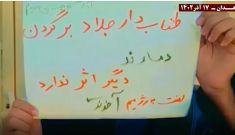 همدان - ۱۷ آذر ۱۴۰۲
طناب دار جلاد بر گردن
دماوند
دیگر اثر ندارد
لعنت بر رژیم آخوندی